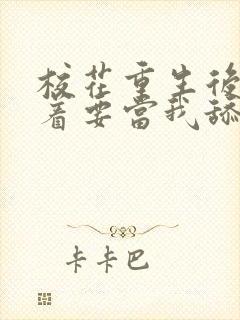 校花重生後
着要當我舔
卡卡巴